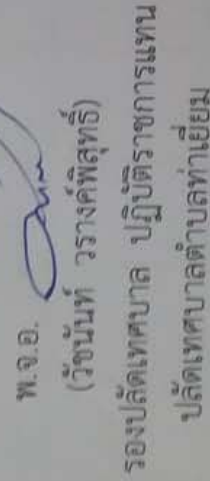 พ.จ.อ.
(วัชนันท์ วรางค์พิสุทธิ์)
รองปลัดเทศบาล ปฏิบัติราชการแทน
ปลัดเทศบาลตำบลท่าเยี่ยม